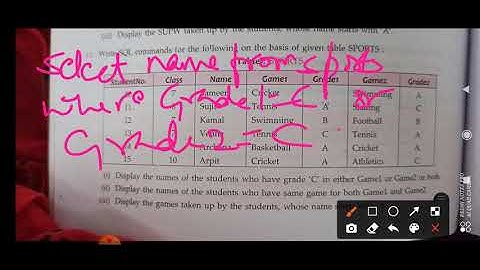 (iii) Display the SUPW taken up by the students, whose name starts with 'A'.
Write SQL commands for the following on the basis of given table SPORTS :
Select name from sports
StudentNo. Class Name Games Grades Games Grades
7 Sameer Cricket Swimming A
where Grade = 'C' or
11 Sujit Tennis A Skating C
12 Kamal Swimming B Football B
13 Venna Tennis C Tennis A
Grade2 = 'C'
Basketball A Cricket A
15 10 Arpit Cricket A Athletics C
(i) Display the names of the students who have grade 'C' in either Game1 or Game2 or both
(ii) Display the names of the students who have same game for both Game1 and Game2.
(iii) Display the games taken up by the students, whose name